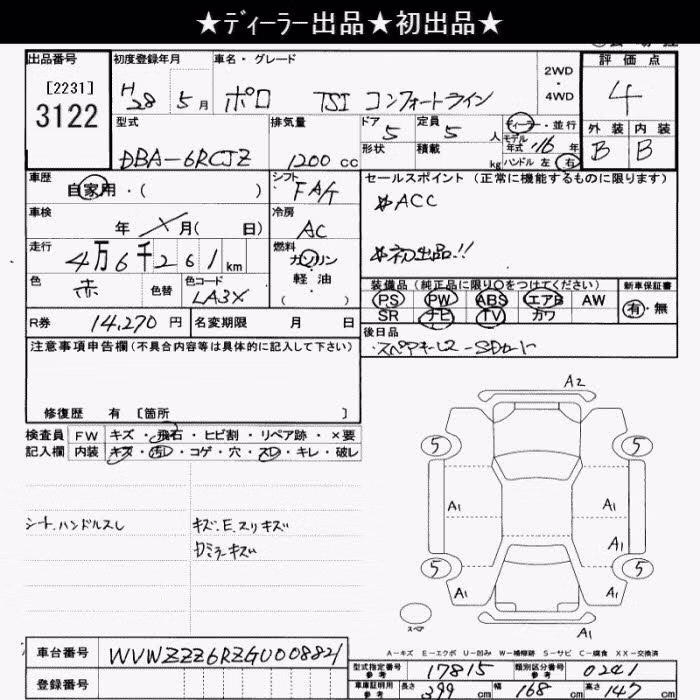 ★ディーラー出品★初出品★
出品番号 初度登録年月 車名・グレード 評価点
[2231]
3122
H28年 5月 ポロ TSI コンフォートライン 2WD・4WD 4
型式 排気量 ドア 定員 ディーラー・並行 外装 内装
DBA-6RCJZ 1200cc 5 5人 モデル年式 '16年 B B
形状 積載 kg ハンドル 左 右
車歴 シフト セールスポイント(正常に機能するものに限ります)
自家用・( ) FA/T
☆ACC
車検 冷房
年 月( 日) AC
☆初出品!!
走行 燃料
4万6千261km ガソリン・軽油・( )
装備品(純正品に限り○をつけてください) 新車保証書
色 色替 色コード PS PW ABS エアB AW 有・無
赤 LA3X SR ナビ TV カワ
R券 14,270円 名変期限 月 日
後日品
注意事項申告欄(不具合内容等は具体的に記入して下さい)
・スペアキーL2-SDカード
修復歴 有 〔箇所 〕
検査員 FW キズ・飛石・ヒビ割・リペア跡・×要
記入欄 内装 キズ・汚レ・コゲ・穴・スレ・キレ・破レ
A2
5 5
A1 A1
A1
5 5
A1 A1
A1
シート、ハンドルスレ キズ、E、スリキズ
ドミラーキズ
スペア
A-キズ E-エクボ U-凹み W-補修跡 S-サビ C-腐食 XX-交換済
車台番号 WVWZZZ6RZGU008821
登録番号
型式指定番号 参考 17815 類別区分番号 参考 0241
車庫証明用 参考 長さ 399cm 幅 168cm 高さ 147cm